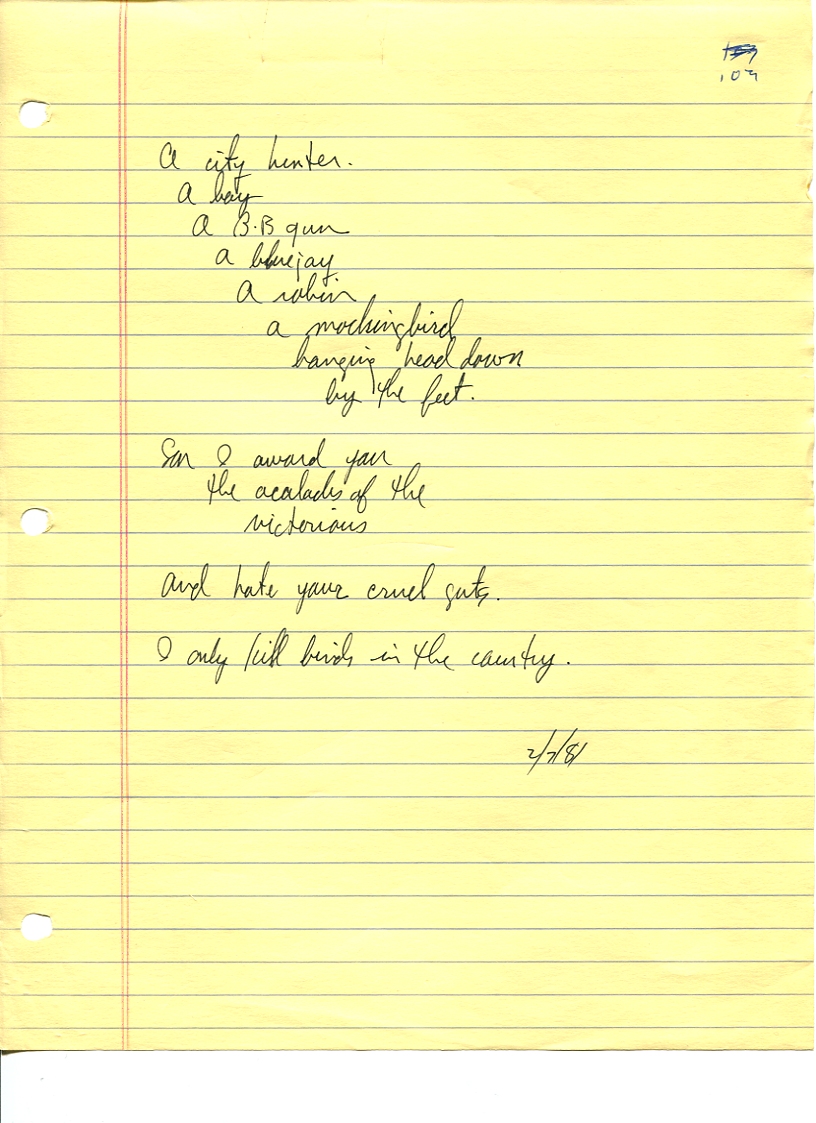 103
A city hunter.
A boy
A B.B gun
a bluejay
A robin
a mockingbird
hanging head down
by the feet.
Son I award you
the acalades of the
victorious
And hate your cruel guts.
I only kill birds in the country.
2/7/81